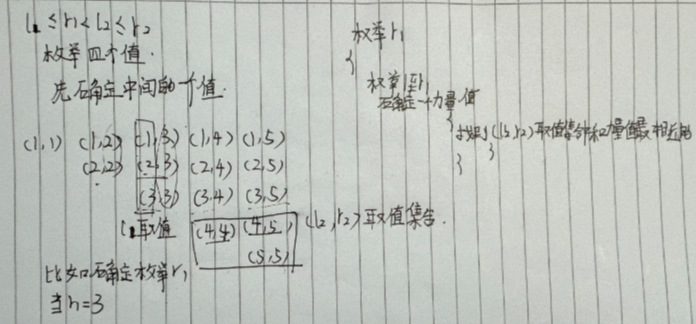 l₁ ≤ r₁ < l₂ ≤ r₂
枚举四个值.
先确定中间的一个值.
(1,1) (1,2) (1,3) (1,4) (1,5)
(2,2) (2,3) (2,4) (2,5)
(3,3) (3,4) (3,5)
l₁取值 (4,4) (4,5) (l₂,r₂)取值集合.
(5,5)
比如确定枚举r₁
当r₁=3
枚举r₁
{
枚举l₁
确定一个力量值
{
找到(l₂,r₂)取值集合中和力量值最相近的
}
}